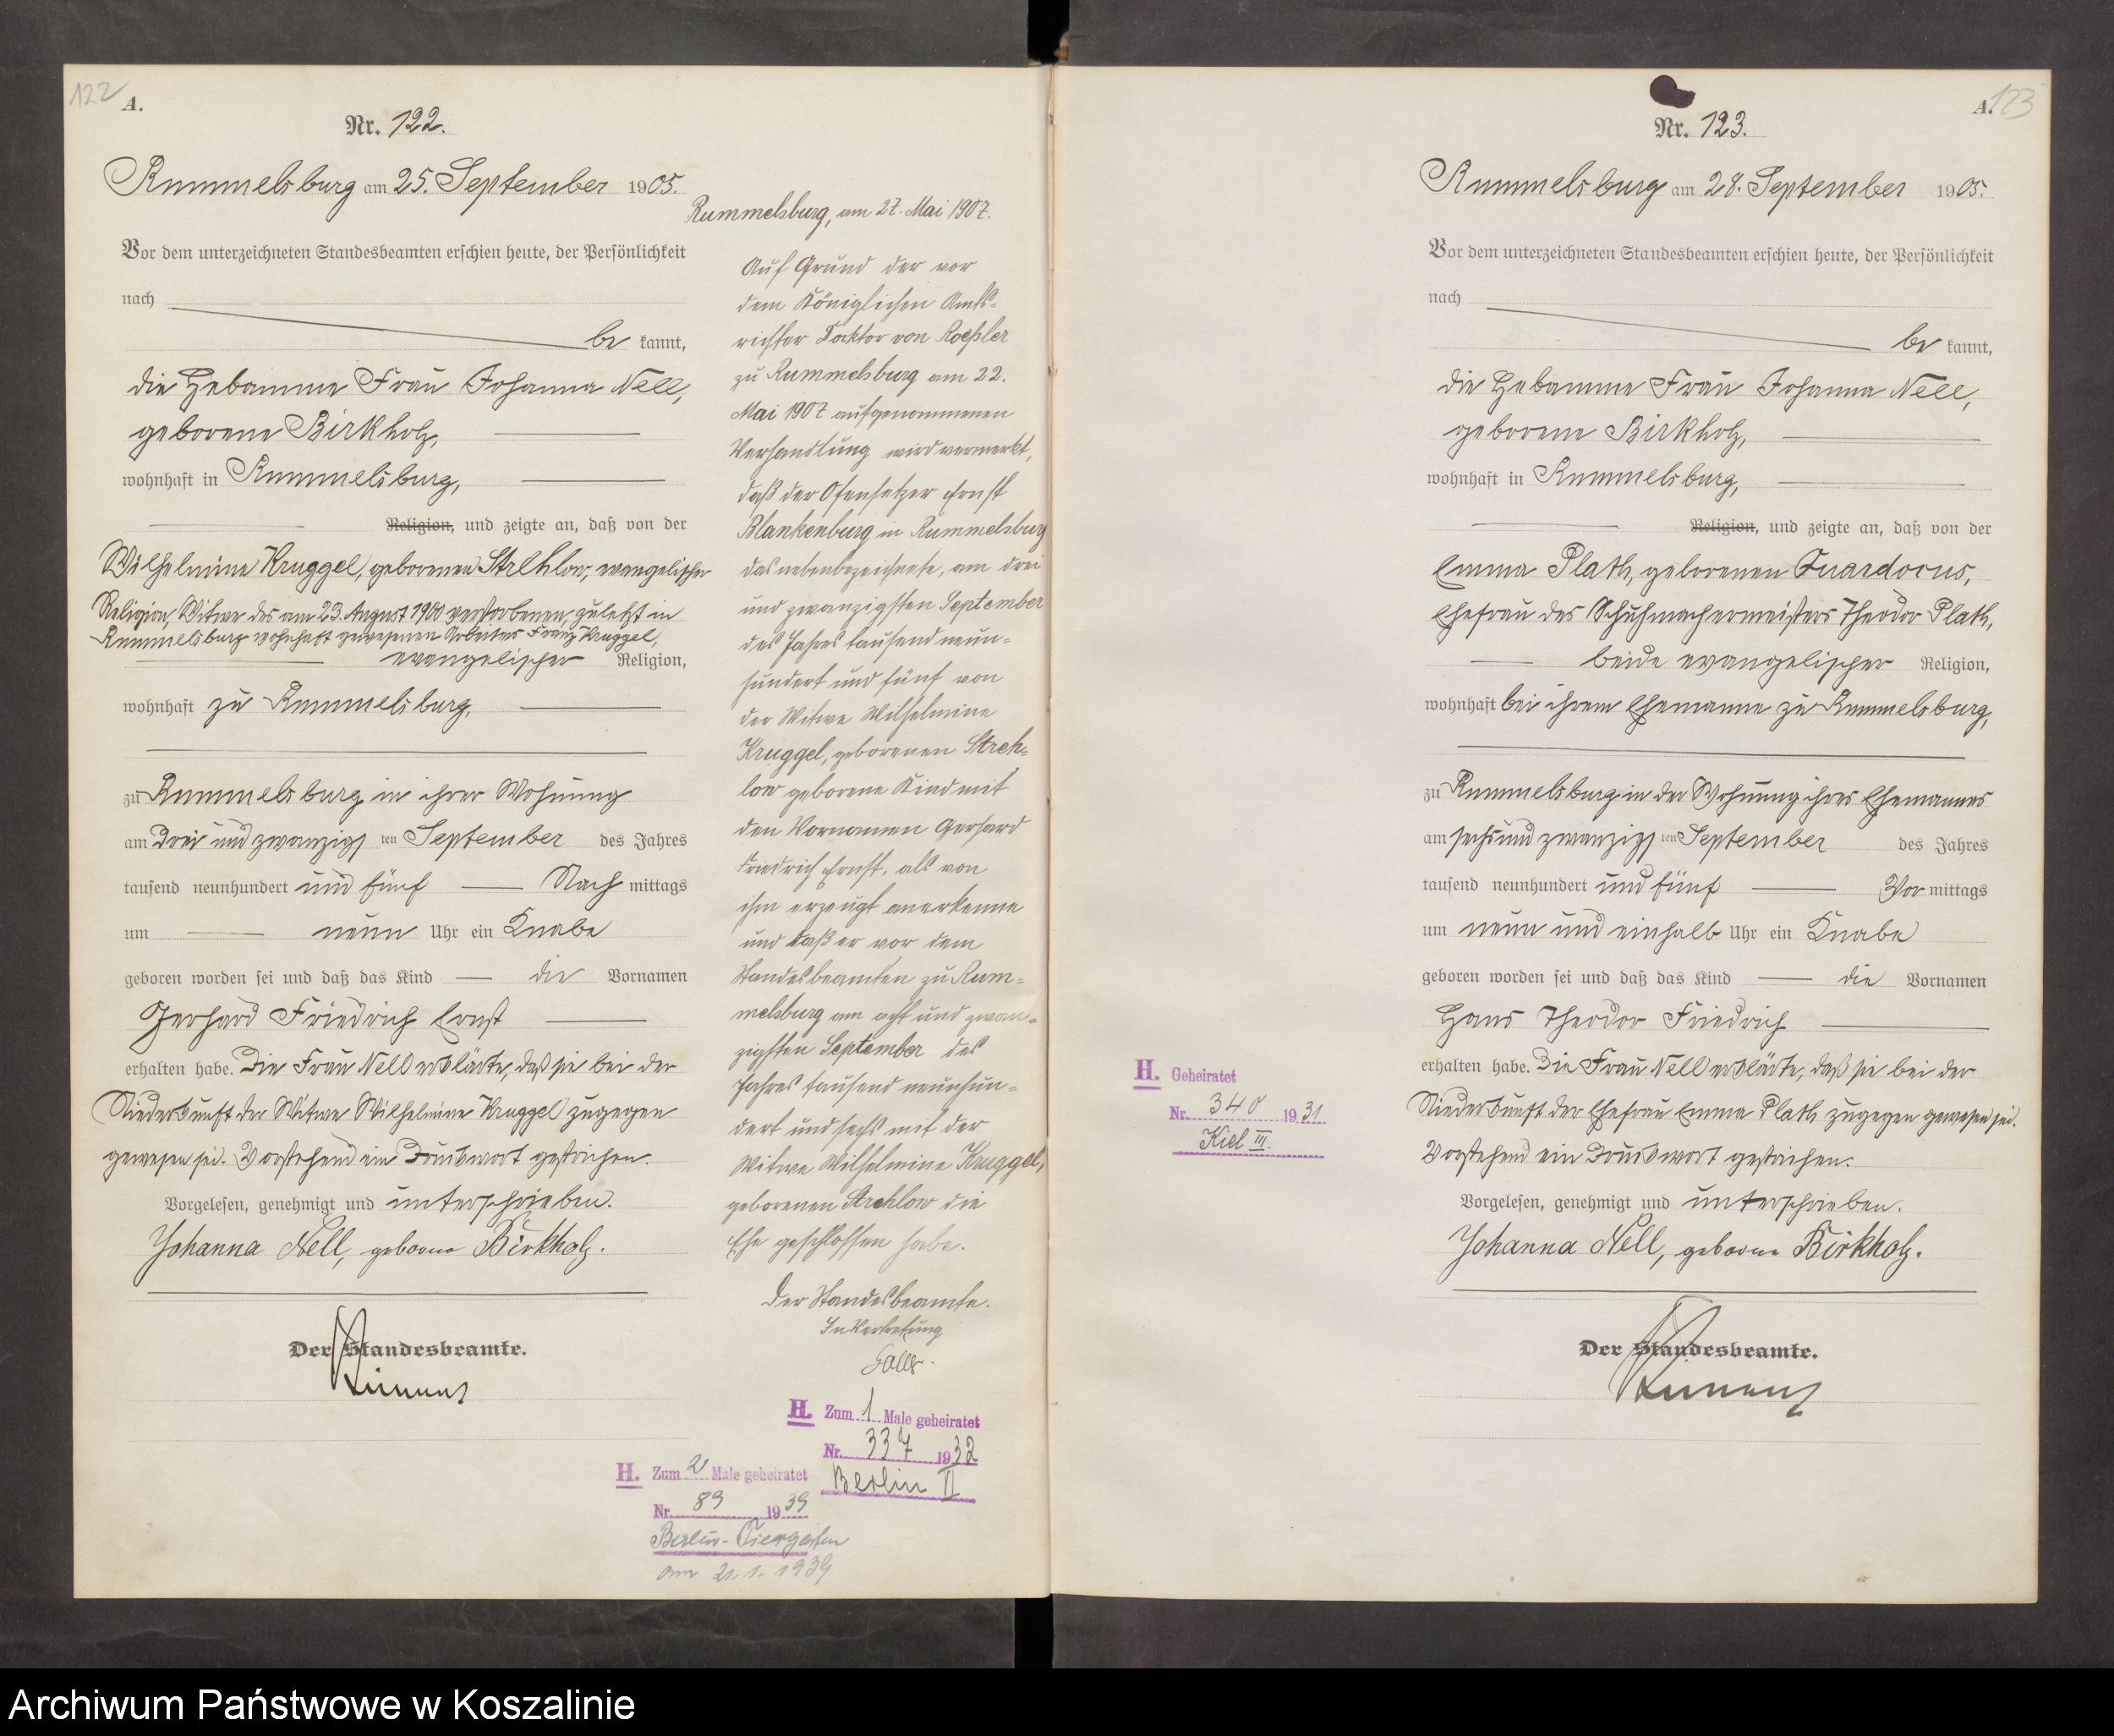 122
A.
Nr. 122.
Rummelsburg am 25. September 1905.
Vor dem unterzeichneten Standesbeamten erschien heute, der Persönlichkeit
nach
be kannt,
die Hebamme Frau Johanna Nell,
geborene Birkholz,
wohnhaft in Rummelsburg,
Religion, und zeigte an, daß von der
Wilhelmine Kruggel, geborenen Strehlow, evangelischer
Religion, Witwe des am 23. August 1900 verstorbenen, zuletzt in
Rummelsburg wohnhaft gewesenen Arbeiters Franz Kruggel,
evangelischer Religion,
wohnhaft zu Rummelsburg,
zu Rummelsburg in ihrer Wohnung
am drei und zwanzigsten September des Jahres
tausend neunhundert und fünf Nach mittags
um neun Uhr ein Knabe
geboren worden sei und daß das Kind die Vornamen
Gerhard Friedrich Ernst
erhalten habe. Die Frau Nell erklärte, daß sie bei der
Niederkunft der Witwe Wilhelmine Kruggel zugegen
gewesen sei. Vorstehend ein Druckwort gestrichen.
Vorgelesen, genehmigt und unterschrieben.
Johanna Nell, geborne Birkholz.
Der Standesbeamte.
Rummelsburg, am 27. Mai 1907.
Auf Grund der vor
dem Königlichen Amts-
richter Doktor von Roeßler
zu Rummelsburg am 22.
Mai 1907 aufgenommenen
Verhandlung wird vermerkt,
daß der Ofensetzer Ernst
Blankenburg in Rummelsburg
das nebenbezeichnete, am drei
und zwanzigsten September
des Jahres tausend neun-
hundert und fünf von
der Witwe Wilhelmine
Kruggel, geborenen Streh-
low geborene Kind mit
den Vornamen Gerhard
Friedrich Ernst, als von
ihm erzeugt anerkenne
und daß er vor dem
Standesbeamten zu Rum-
melsburg am acht und zwan-
zigsten September des
Jahres tausend neunhun-
dert und sechs mit der
Witwe Wilhelmine Kruggel,
geborenen Strehlow die
Ehe geschlossen habe.
Der Standesbeamte.
In Vertretung
H. Zum 1 Male geheiratet
Nr. 337 1932
Berlin VI
H. Zum 2 Male geheiratet
Nr. 89 1939
Berlin-Tiergarten
am 21.1.1939
A. 123
Nr. 123.
Rummelsburg am 28. September 1905.
Vor dem unterzeichneten Standesbeamten erschien heute, der Persönlichkeit
nach
be kannt,
die Hebamme Frau Johanna Nell,
geborene Birkholz,
wohnhaft in Rummelsburg,
Religion, und zeigte an, daß von der
Emma Plath, geborenen
Ehefrau des Schuhmachermeisters Theodor Plath,
beide evangelischer Religion,
wohnhaft bei ihrem Ehemanne zu Rummelsburg,
zu Rummelsburg in der Wohnung ihres Ehemannes
am sechs und zwanzigsten September des Jahres
tausend neunhundert und fünf Vor mittags
um neun und einhalb Uhr ein Knabe
geboren worden sei und daß das Kind die Vornamen
Hans Theodor Friedrich
erhalten habe. Die Frau Nell erklärte, daß sie bei der
Niederkunft der Ehefrau Emma Plath zugegen gewesen sei.
Vorstehend ein Druckwort gestrichen.
Vorgelesen, genehmigt und unterschrieben.
Johanna Nell, geborne Birkholz.
Der Standesbeamte.
H. Geheiratet
Nr. 340 1931
Kiel III.
Archiwum Państwowe w Koszalinie